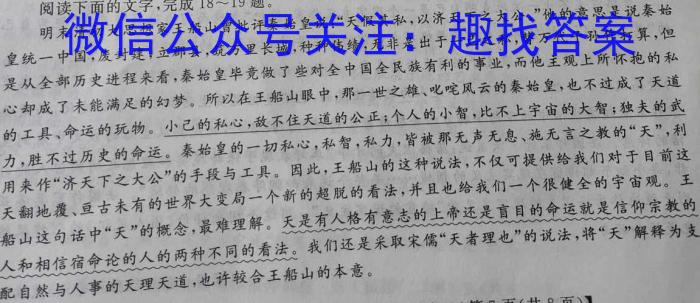 阅读下面的文字,完成18～19题。
微信公众号关注：趣找答案
皇统一中国,
是从全部历史进程来看,秦始皇毕竟做了些对全中国全民族有利的事业,而他主观上所怀抱的私
心却成了未能满足的幻梦。所以在王船山眼中,那一世之雄、叱咤风云的秦始皇,也不过成了天道
的工具、命运的玩物。小己的私心,敌不住天道的公正;个人的小智,比不上宇宙的大智;独夫的武
力,胜不过历史的命运。秦始皇的一切私心,私智,私力,皆被那无声无息、施无言之教的“天”,利
用来作“济天下之大公”的手段与工具。因此,王船山的这种说法,不仅可提供给我们对于目前这
天翻地覆、亘古未有的世界大变局一个新的超脱的看法,并且也给我们一个很健全的宇宙观。王
船山这句话中“天”的概念,最难理解。天是有人格有意志的上帝还是盲目的命运就是信仰宗教的
人和相信宿命论的人的两种不同的看法。我们还是采取宋儒“天者理也”的说法,将“天”解释为支
配自然与人事的天理天道,也许较合王船山的本意。
页(共8页)】